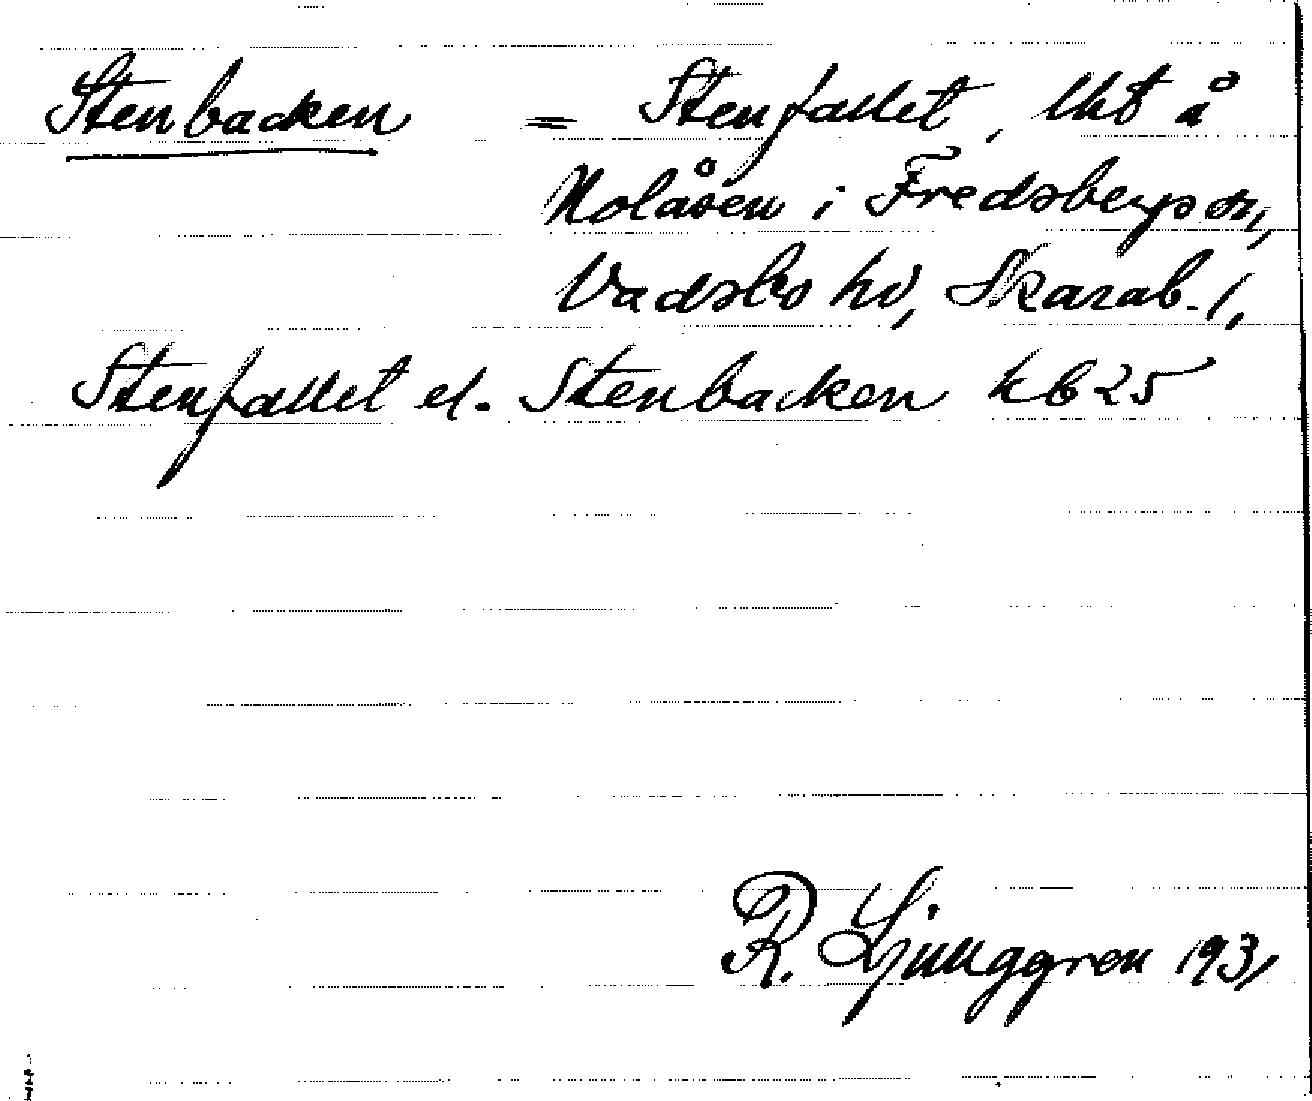 Stenbacken = Stenfallet, lht å
Nolåsen i Fredsbergs sn,
Vadsbo hd, Skarab. l,
Stenfallet el. Stenbacken kb 25
R. Ljunggren 1931